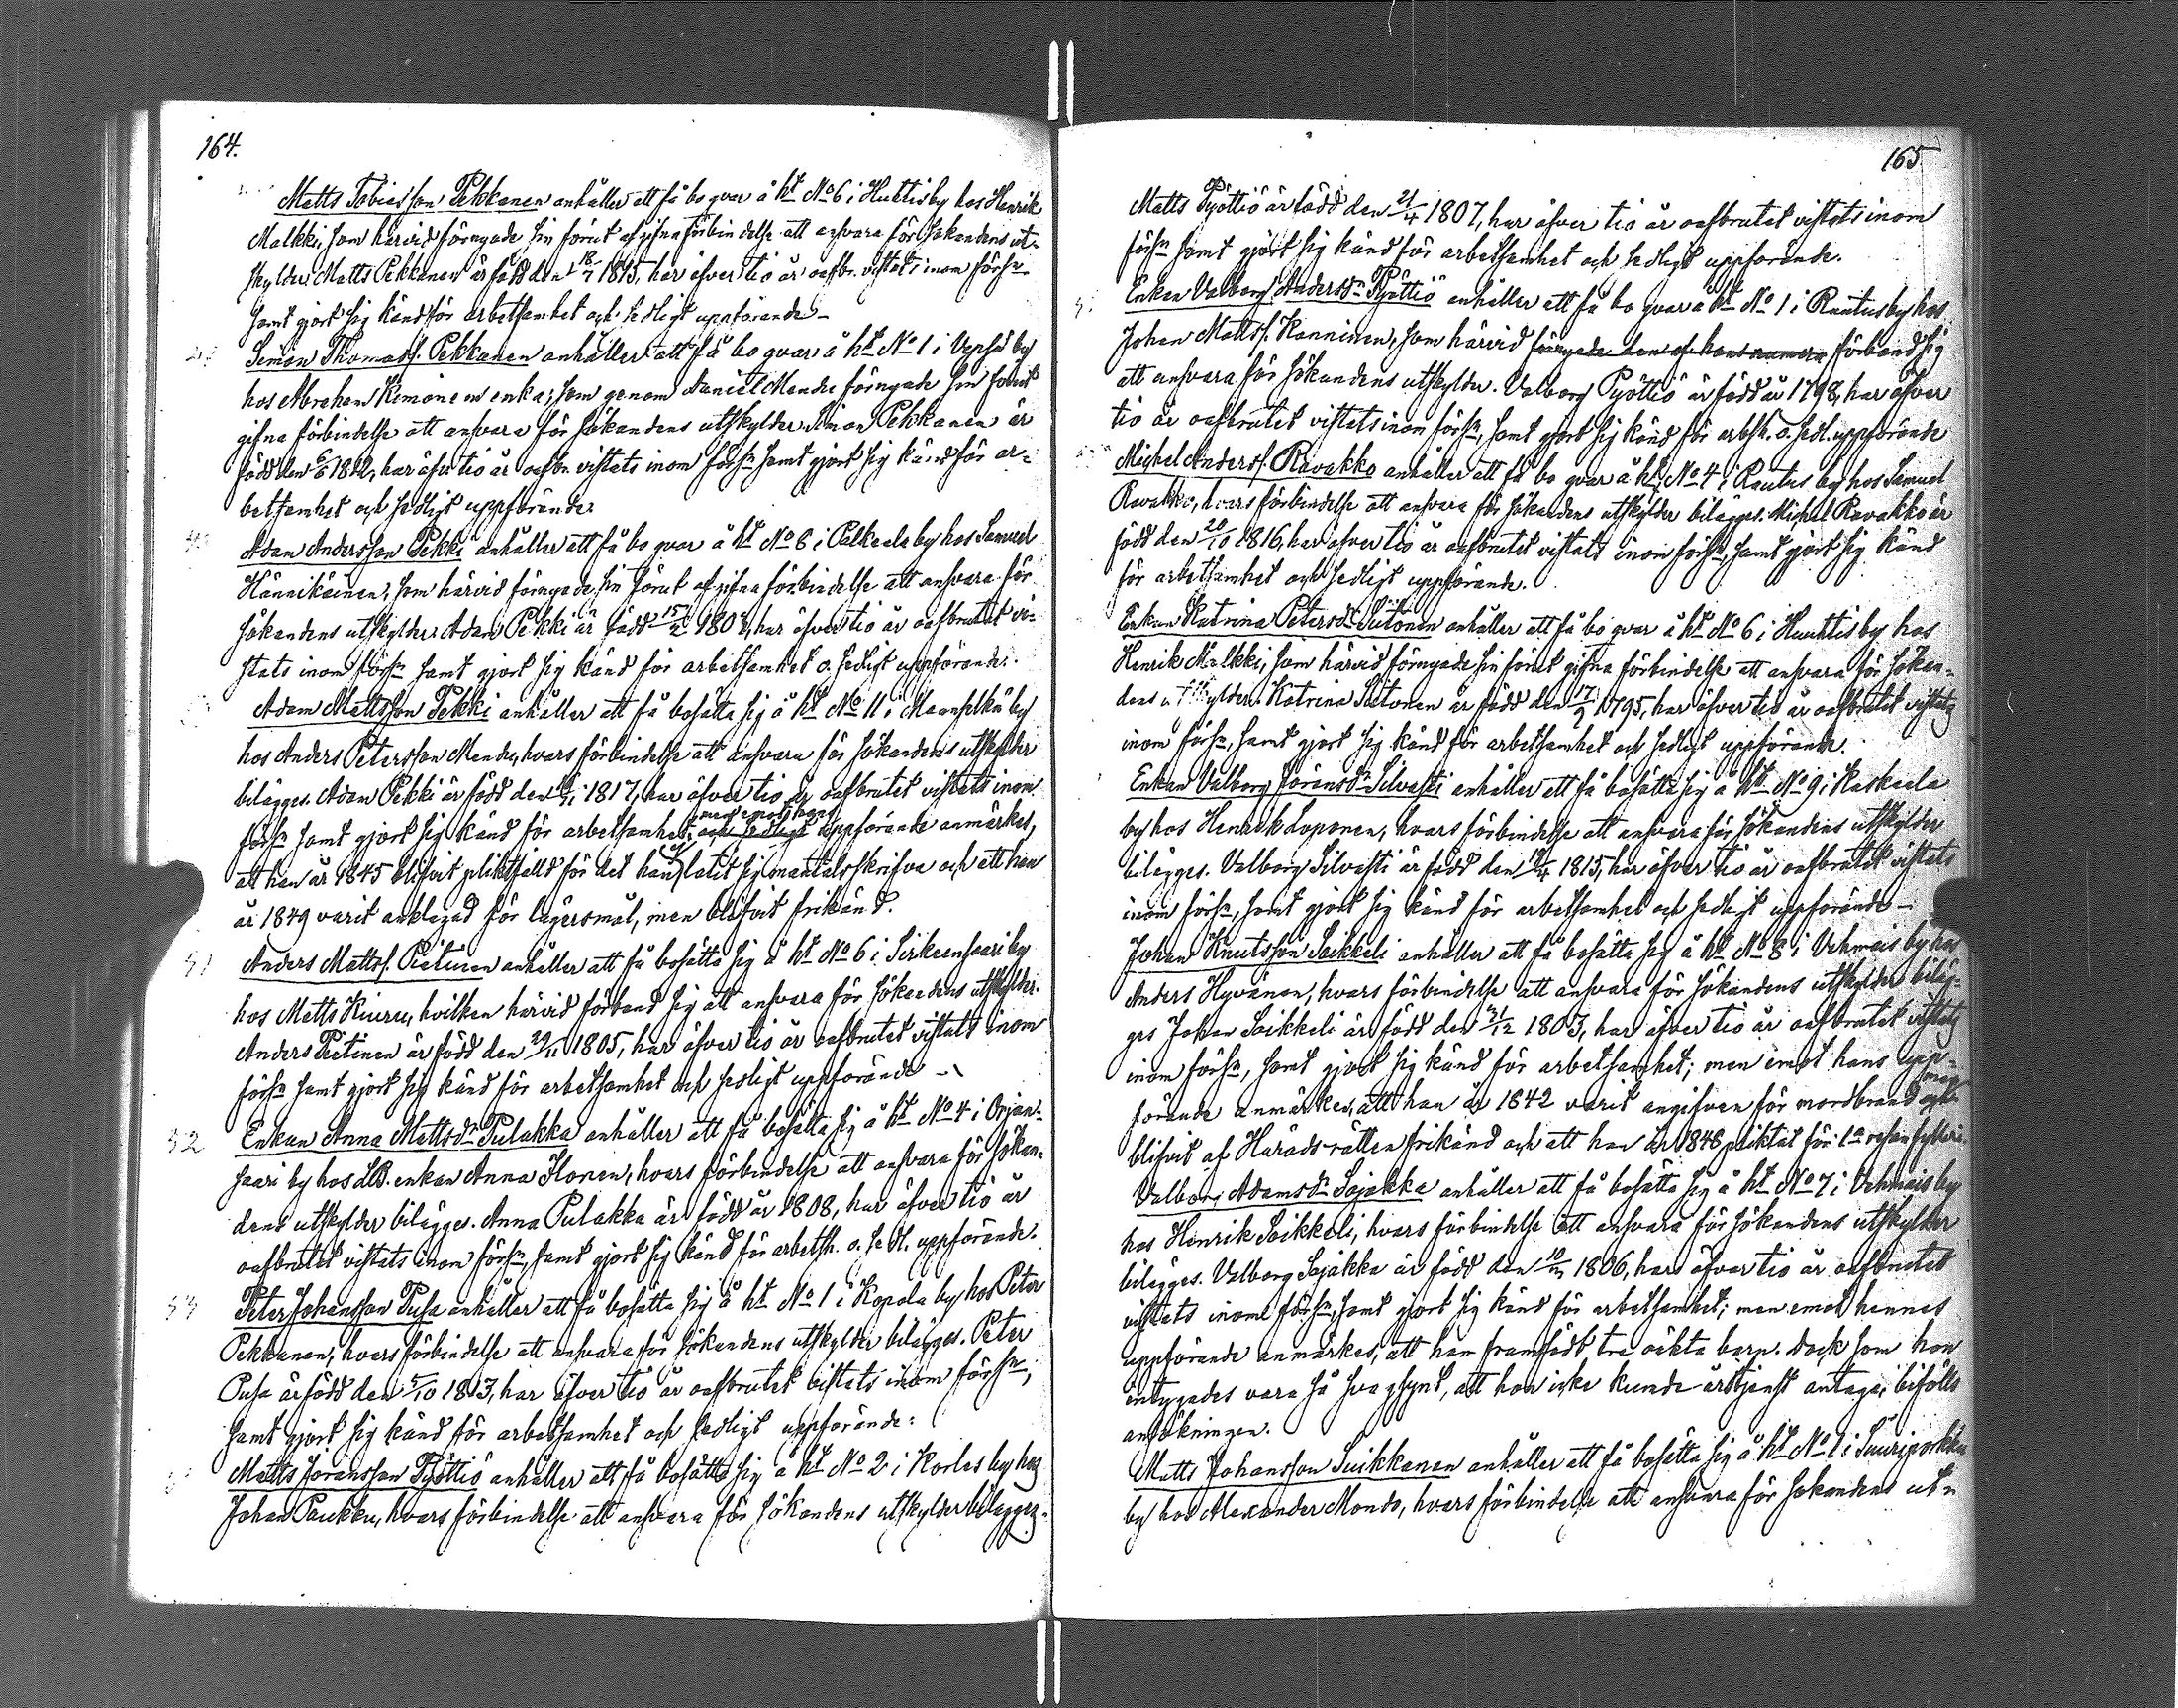 164.
Matts Tobiasson Pekkanen anhåller att få bo qvar å ht No 6 i Huttis by hos Henrik
Malkki, som härvid förnyade sin förut afgifna förbindelse att ansvara för sökandens ut-
skylder. Matts Pekkanen är född den 18/7 1815, har öfver tio år oafbr. vistats inom förs:n
samt gjort sig känd för arbetsamhet och sedligt uppförande –
Simon Thomass. Pekkanen anhåller att få bo qvar å ht No 1 i Vepsä by
hos Abraham Kimonens enka, som genom Daniel Mende förnyade sin förut
gifna förbindelse att ansvara för sökandens utskylder. Simon Pekkanen är
född den 6/6 1812, har öfver tio år oafbr. vistats inom förs:n samt gjort sig känd för ar-
betsamhet och sedligt uppförande.
Adam Andersson Pekki anhåller att få bo qvar å ht No 8 i Palkeala by hos Samuel
Hännikäinen, som härvid förnyade sin förut afgifna förbindelse att ansvara för
sökandens utskylder. Adam Pekki är född 15/2 180, har öfver tio år oafbrutet vi-
stats inom förs:n samt gjort sig känd för arbetsamhet o. sedligt uppförande.
Adam Mattsson Pekki anhåller att få bosätta sig å ht No 11 i Maanselkä by
hos Anders Petersson Mende, hvars förbindelse att ansvara för sökandens utskylder
bilägges. Adam Pekki är född den 1817, har öfver tio år oafbrutet vistats inom
förs:n samt gjort sig känd för arbetsamhet; men emot hans och sedligt uppförande anmärkes,
att han år 1845 blifvit pliktfälld för det han ej låtit sig mantalsskrifva och att han
år 1849 varit anklagad för lägersmål, men blifvit frikänd.
51 Anders Mattss. Pietinen anhåller att få bosätta sig å ht No 6 i Sirkeensaari by
hos Matts Kiuru, hvilken härvid förband sig att ansvara för sökandens utskylder.
Anders Pietinen är född den 29/11 1805, har öfver tio år oafbrutet vistats inom
förs:n samt gjort sig känd för arbetsamhet och sedligt uppförande –
52 Enkan Anna Mattsd:r Pulakka anhåller att få bosätta sig å ht No 4 i Orjan-
saari by hos LB. enkan Anna Ilonen, hvars förbindelse att ansvara för sökan-
dens utskylder bilägges. Anna Pulakka är född år 1808, har öfver tio år
oafbrutet vistats inom förs:n, samt gjort sig känd för arbetsh. o. sedl. uppförande.
53 Peter Johansson Pusa anhåller att få bosätta sig å ht No 1 i Kopala by hos Peter
Pekkanen, hvars förbindelse att ansvara för sökandens utskylder bilägges. Peter
Pusa är född den 5/10 1813, har öfver tio år oafbrutet vistats inom förs:n,
samt gjort sig känd för arbetsamhet och sedligt uppförande.
Matts Göransson Pyöttiö anhåller att få bosätta sig å ht No 2 i Korles by hos
Johan Paukku, hvars förbindelse att ansvara för sökandens utskylder bilägges.
165
Matts Pyöttiö är född den 21/4 1807, har öfver tio år oafbrutet vistats inom
förs:n samt gjort sig känd för arbetsamhet och sedligt uppförande.
Enkan Valborg Andersd:r Pyöttiö anhåller att få bo qvar å ht No 1 i Rautus by hos
Johan Mattss. Kanninen, som härvid förnyade den af hans förband sig
att ansvara för sökandens utskylder. Valborg Pyöttiö är född år 1798, har öfver
tio år oafbrutet vistats inom förs:n, samt gjort sig känd för arbsh. o. sedl. uppförande
Michel Anderss. Ravakko anhåller att få bo qvar å ht No 4 i Rautus by hos Samuel
Ravakko, hvars förbindelse att ansvara för sökandens utskylder bilägges. Michel Ravakko är
född den 20/10 1816, har öfver tio år oafbrutet vistats inom förs:n, samt gjort sig känd
för arbetsamhet och sedligt uppförande.
Enkan Katrina Petersd:r Siitonen anhåller att få bo qvar å ht No 6 i Huuhtis by hos
Henrik Malkki, som härvid förnyade sin förut gifna förbindelse att ansvara för sökan-
dens utskylder. Katrina Siitonen är född den 17/9 1795, har öfver tio år oafbrutet vistats
inom förs:n, samt gjort sig känd för arbetsamhet och sedligt uppförande.
Enkan Valborg Göransd:r Silvasti anhåller att få bosätta sig å ht No 9 i Kaskeala
by hos Henrik Loponen, hvars förbindelse att ansvara för sökandens utskylder
bilägges. Valborg Silvasti är född den 1815, har öfver tio år oafbrutet vistats
inom förs:n, samt gjort sig känd för arbetsamhet och sedligt uppförande –
Johan Knutsson Saikkeli anhåller att få bosätta sig å ht No 8 i Vehmais by hos
Anders Hyvänen, hvars förbindelse att ansvara för sökandens utskylder biläg-
ges. Johan Saikkeli är född den 21/12 1803, har öfver tio år oafbrutet vistats
inom förs:n, samt gjort sig känd för arbetsamhet; men emot hans upp-
förande anmärkes, att han år 1842 varit angifven för mordbrand men
blifvit af Häradsrätten frikänd och att han år 1848 pliktat för 1:a resan fylleri.
Valborg Adamsd:r Sajakka anhåller att få bosätta sig å ht No 7 i Vehmais by
hos Henrik Saikkeli, hvars förbindelse att ansvara för sökandens utskylder
bilägges. Valborg Sajakka är född den 1806, har öfver tio år oafbrutet
vistats inom förs:n, samt gjort sig känd för arbetsamhet; men emot hennes
uppförande anmärkes, att hon framfödt tre oäkta barn. Dock som hon
intygades vara så svagsynt, att hon icke kunde årstjenst antaga, bifölls
ansökningen.
Matts Johansson Suikkanen anhåller att få bosätta sig å ht No 1 i Suuriporkku
by hos Alexander Mondo, hvars förbindelse att ansvara för sökandens ut-